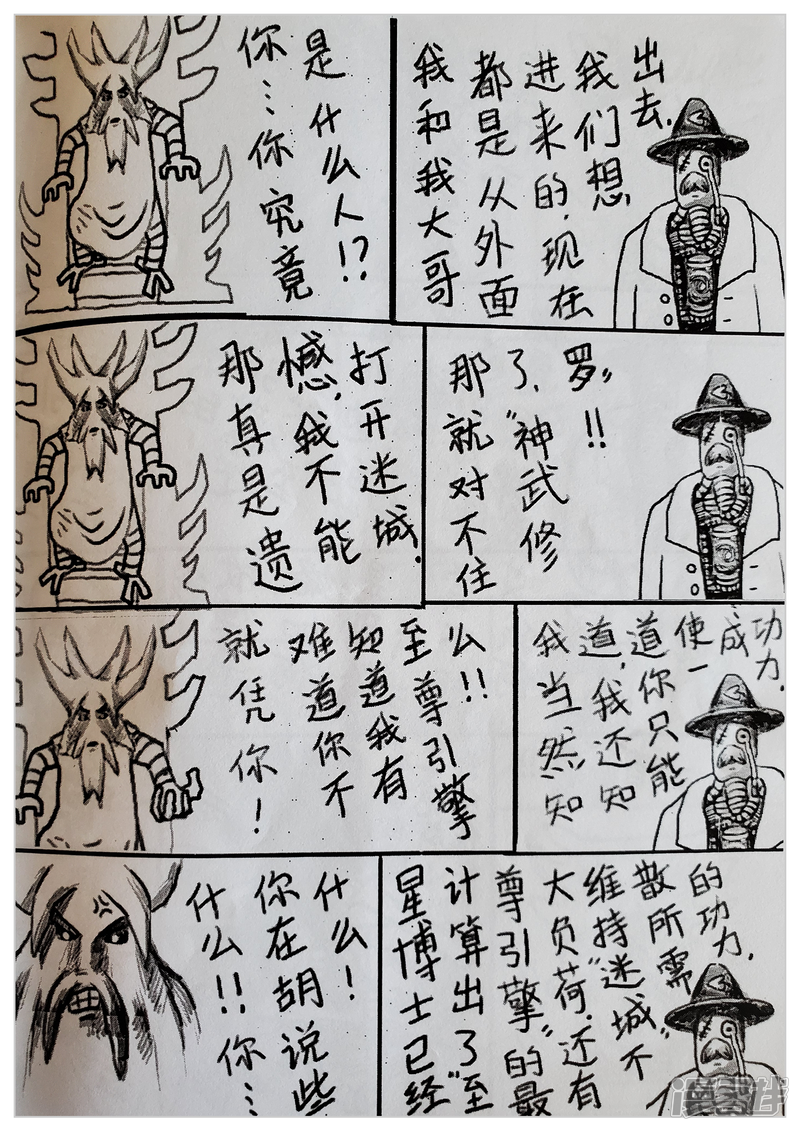 你…你究竟
是什么人!?
我和我大哥
都是从外面
进来的,现在
我们想
出去.
那真是遗
憾,我不能
打开迷城.
那就对不住
了,“神武修
罗”!!
就凭你!
难道你不
知道我有
至尊引擎
么!!
我当然知
道,我还知
道你只能
使一
成
功力.
什么!!你…
你在胡说些
什么!
星博士已经
计算出了“至
尊引擎”的最
大负荷.还有
维持“迷城”不
散所需
的功力.